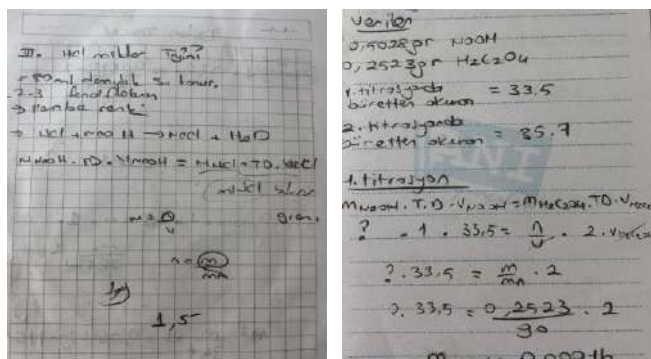 III. HCl miktar Tayini
2-3 fenolftalein
→ pembe renk
→ HCl + NaOH → NaCl + H2O
MNaOH . TD . VNaOH = MHCl . TD . VHCl
M = n/V
n = m/MA
1,5
Verilen
0,5028gr NaOH
0,2523gr H2C2O4
1. titrasyonda
büretten okunan = 33.5
2. titrasyonda
büretten okunan = 35.7
1. titrasyon
MNaOH . T.D . VNaOH = MH2C2O4 . TD . VH2C2O4
? . 1 . 33,5 = n/V . 2 . VH2C2O4
? . 33,5 = m/MA . 2
? . 33,5 = 0,2523/90 . 2